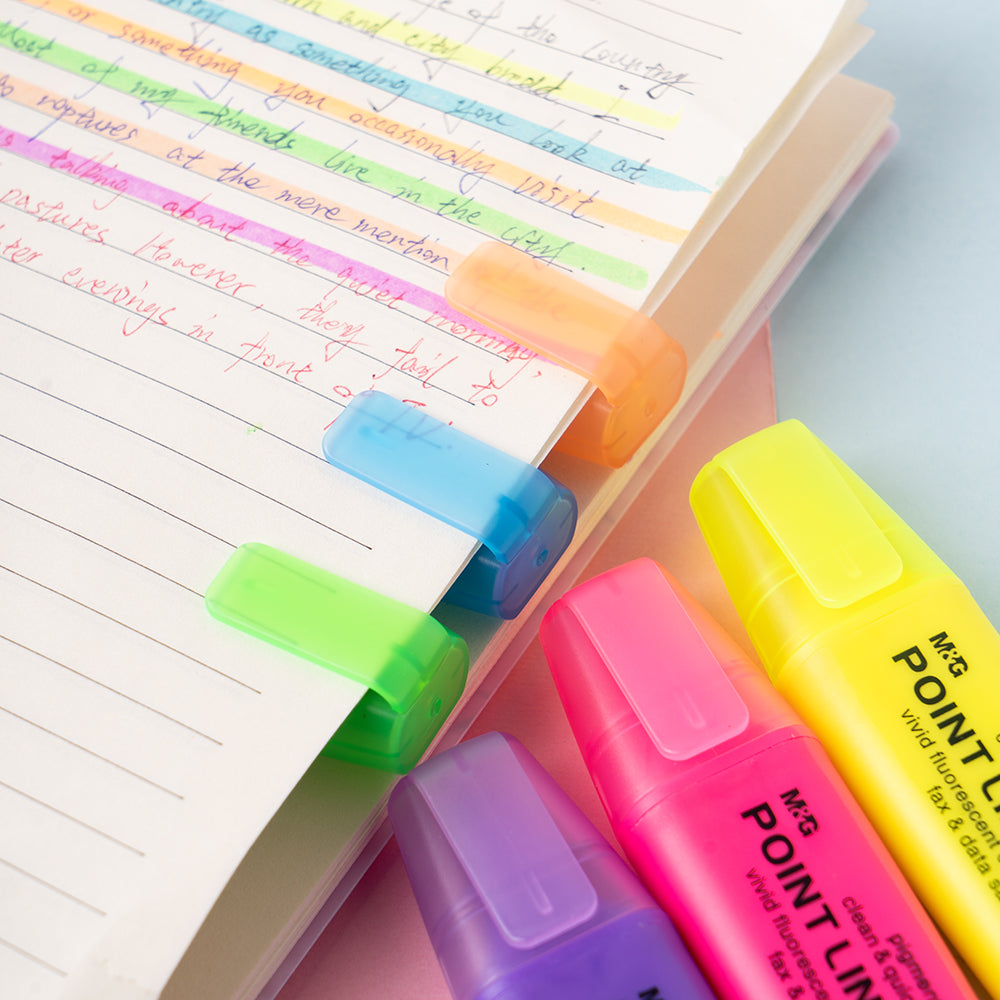 of the country
and city
as something you look at
or something you occasionally visit
Most of my friends live in the city.
raptures at the mere mention
talking about the quiet mornings,
pastures However, they fail to
evenings in front
M&G
POINT LI
vivid fluorescent
fax & data s
M&G
POINT LIN
clean & quic
pigmen
vivid fluoresce
fax &
M&